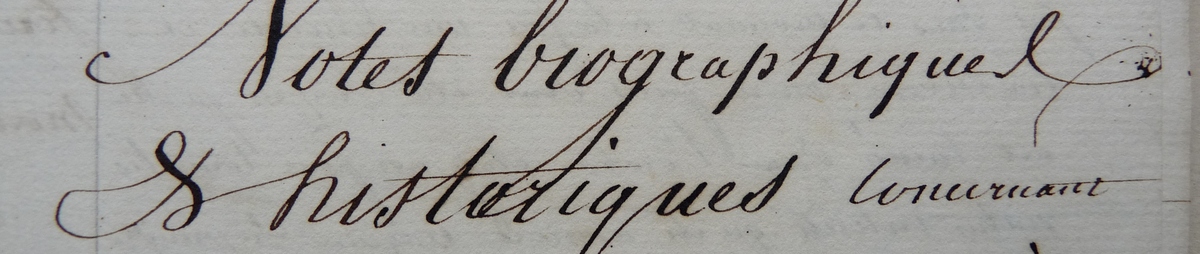 Notes biographiques
& historiques concernant